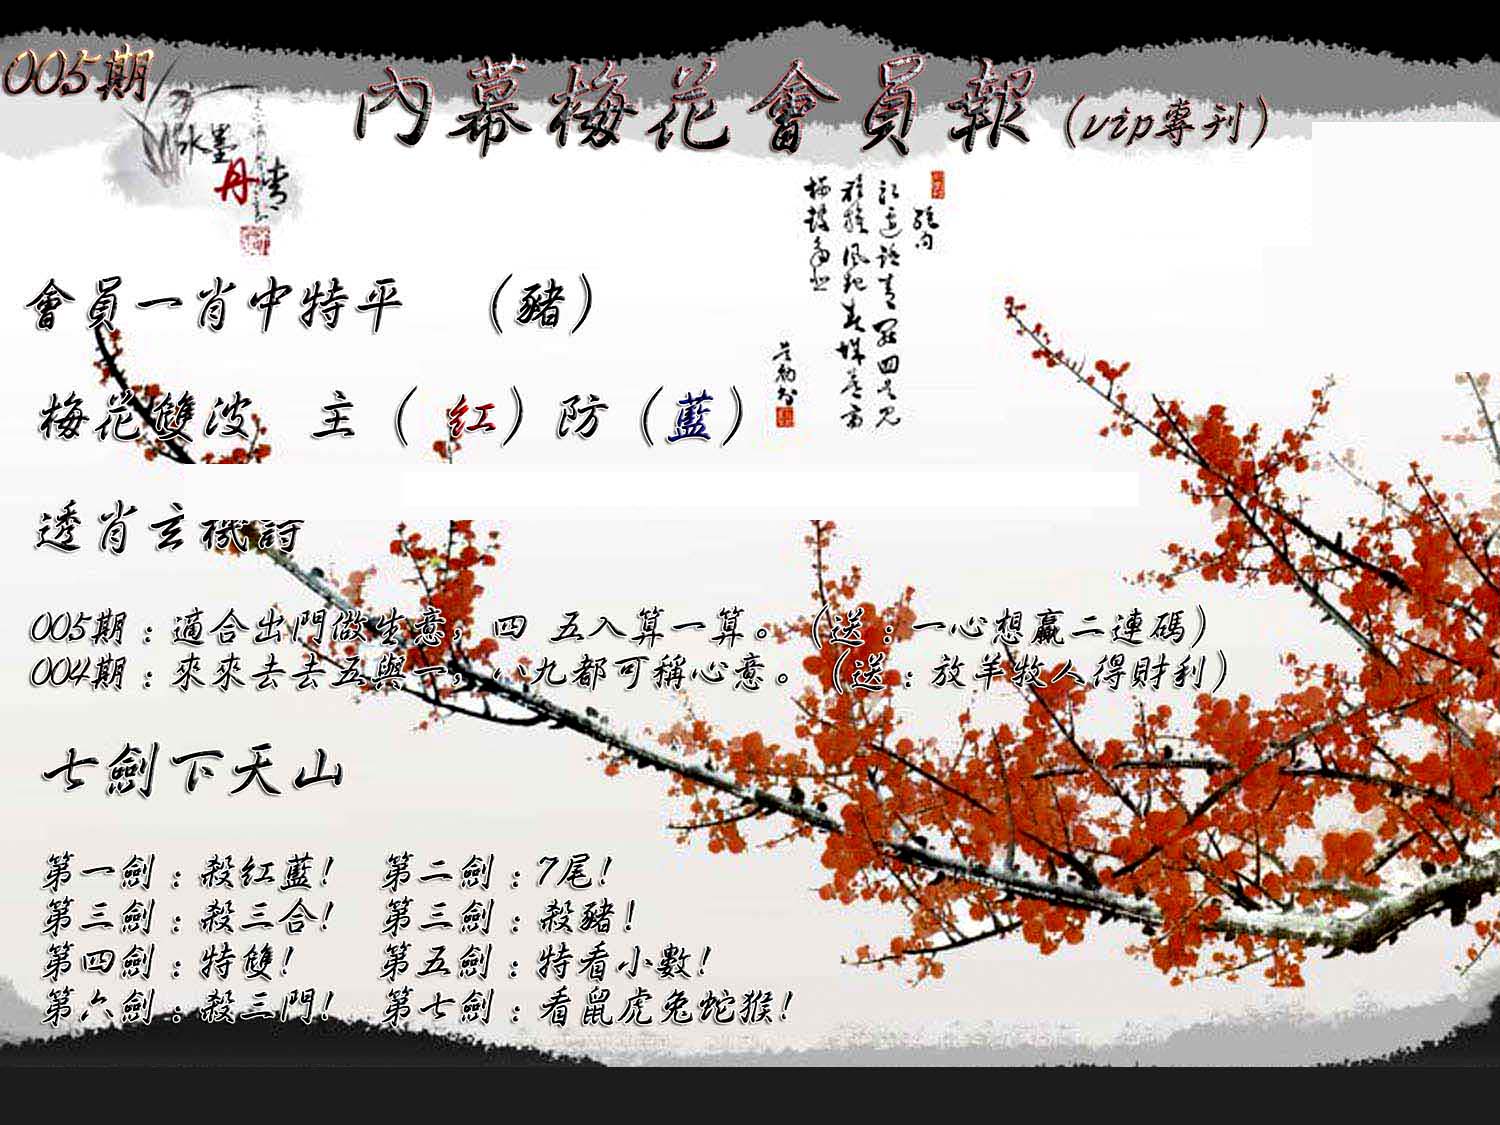 005期
內幕梅花會員報(vip專刊)
水墨
丹青
絕句
會員一肖中特平 (豬)
梅花雙波 主(紅)防(藍)
透肖玄機詩
005期:適合出門做生意,四 五入算一算。(送:一心想贏二連碼)
004期:來來去去五與一,八九都可稱心意。(送:放羊牧人得財利)
七劍下天山
第一劍:殺紅藍! 第二劍:7尾!
第三劍:殺三合! 第三劍:殺豬!
第四劍:特雙! 第五劍:特看小數!
第六劍:殺三門! 第七劍:看鼠虎兔蛇猴!